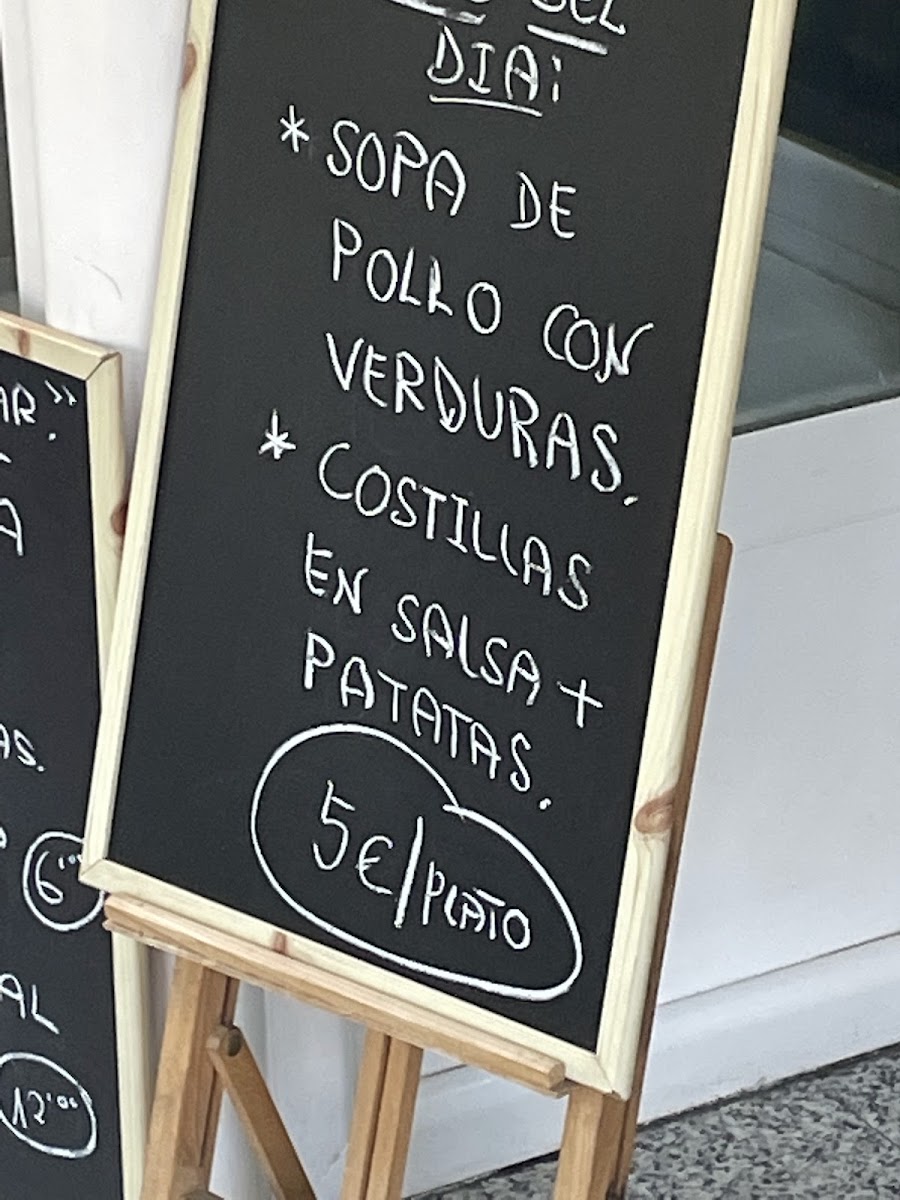 DEL
DIA:
* SOPA DE
POLLO CON
VERDURAS.
* COSTILLAS
EN SALSA +
PATATAS.
5€/PLATO
AR".
A
AS.
6'00
AL
12'00